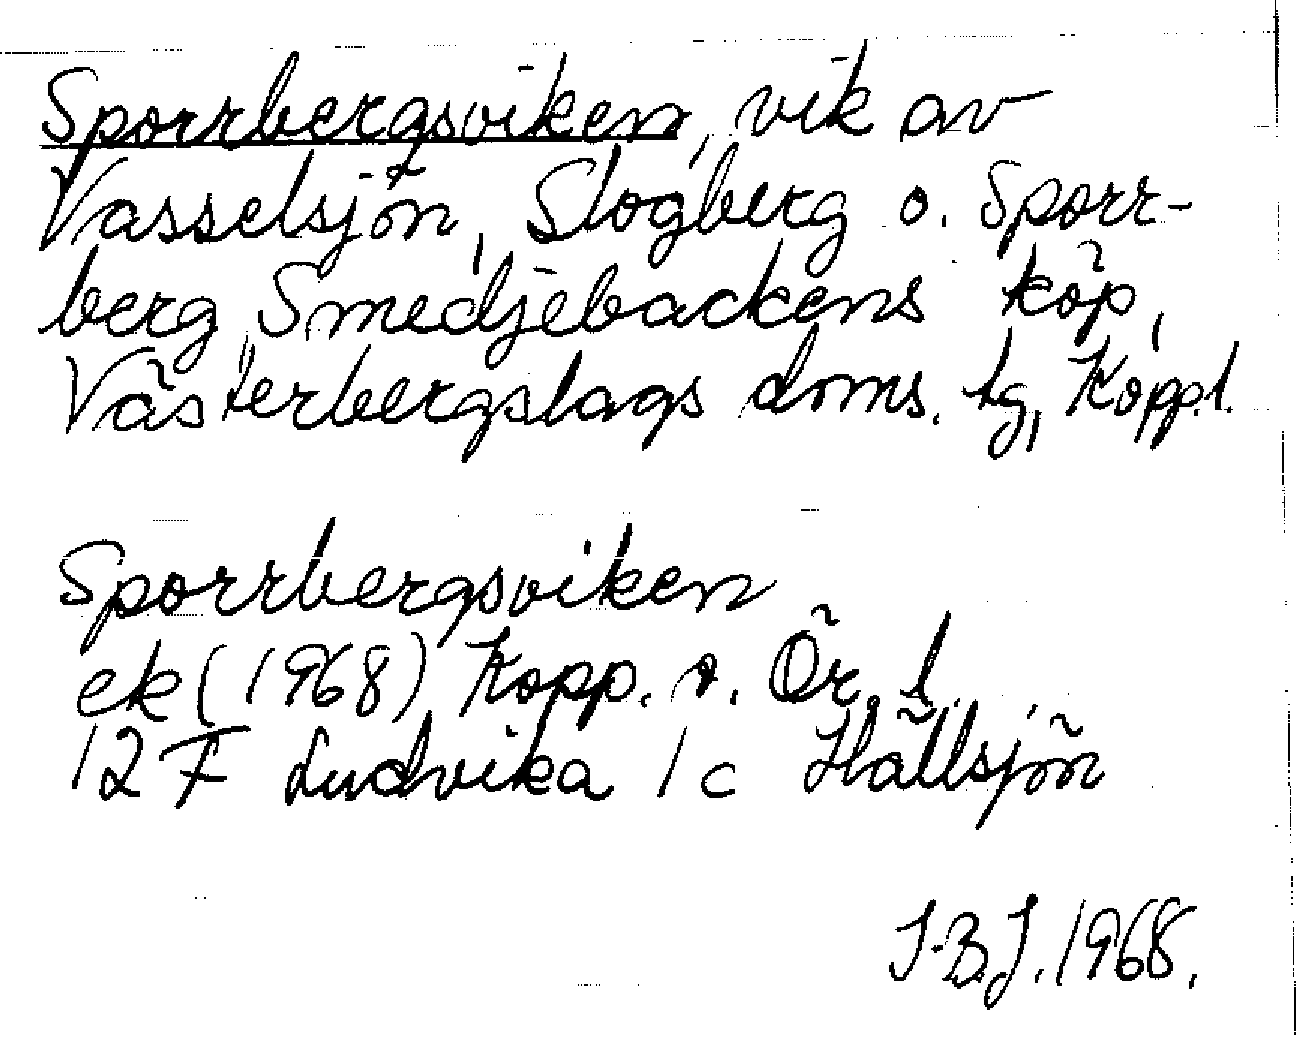 Sporrbergsviken, vik av
Vasselsjön, Slogberg o. Sporr-
berg, Smedjebackens köp,
Västerbergslags doms. tg, Kopp.l.
Sporrbergsviken
ek (1968) Kopp. o. Ör. l
12 F Ludvika 1 c Hällsjön
I-B.J. 1968.